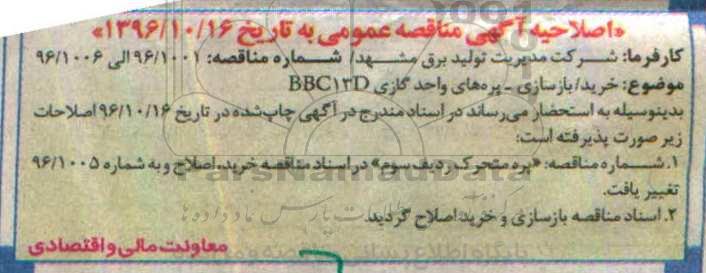 «اصلاحیه آگهی مناقصه عمومی به تاریخ ۱۳۹۶/۱۰/۱۶»
کارفرما: شرکت مدیریت تولید برق مشهد/ شماره مناقصه: ۹۶/۱۰۰۱ الی ۹۶/۱۰۰۶
موضوع: خرید/بازسازی - پره‌های واحد گازی BBC۱۳D
بدینوسیله به استحضار می‌رساند در اسناد مندرج در آگهی چاپ‌شده در تاریخ ۹۶/۱۰/۱۶ اصلاحات
زیر صورت پذیرفته است:
۱. شماره مناقصه: «پره متحرک ردیف سوم» در اسناد مناقصه خرید، اصلاح و به شماره ۹۶/۱۰۰۵
تغییر یافت.
ParsNamadData
۲. اسناد مناقصه بازسازی و خرید اصلاح گردید.
معاونت مالی و اقتصادی